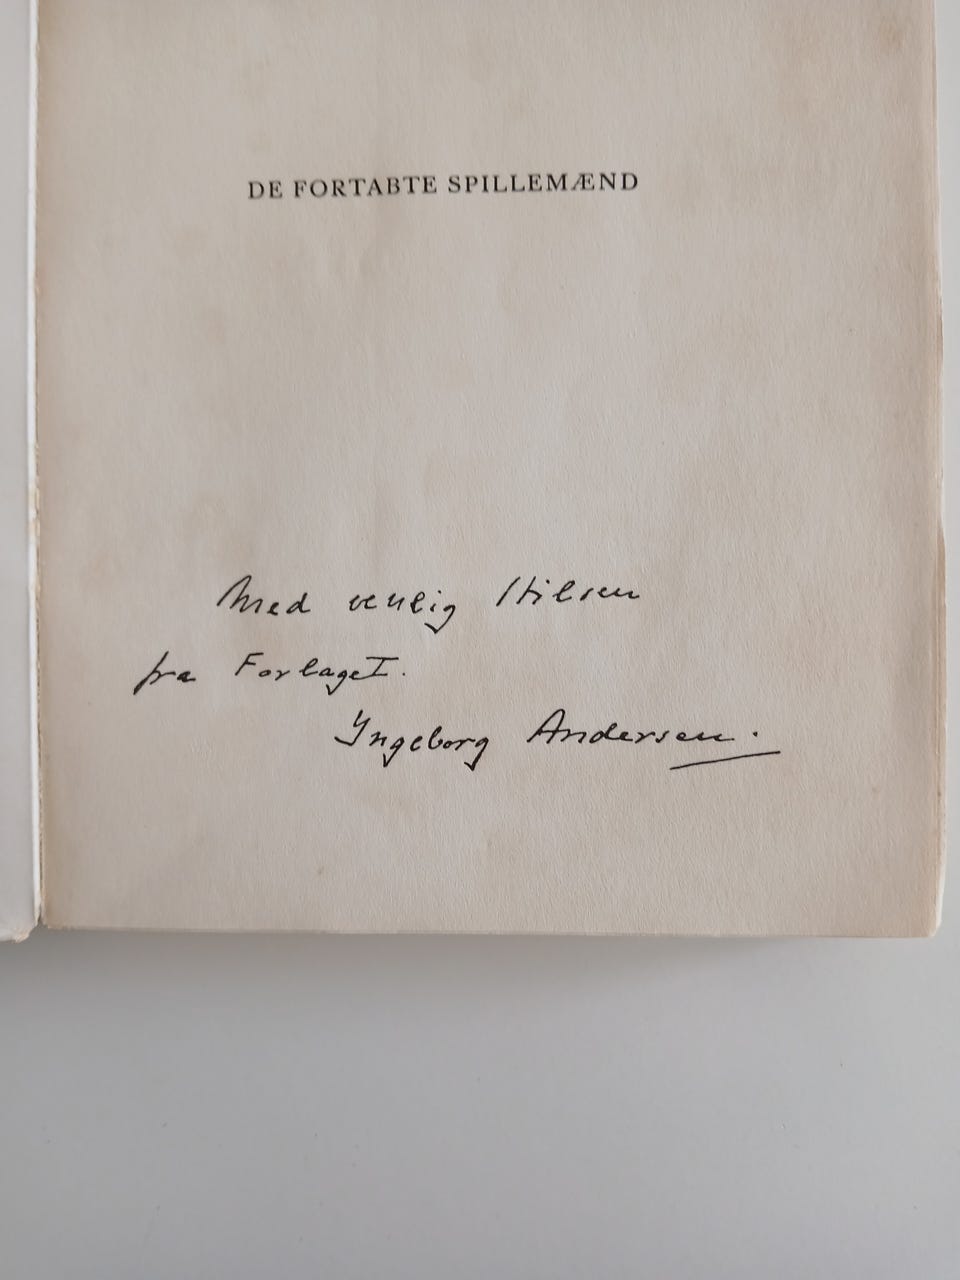 DE FORTABTE SPILLEMÆND
Med venlig Hilsen
fra Forlaget.
Ingeborg Andersen.